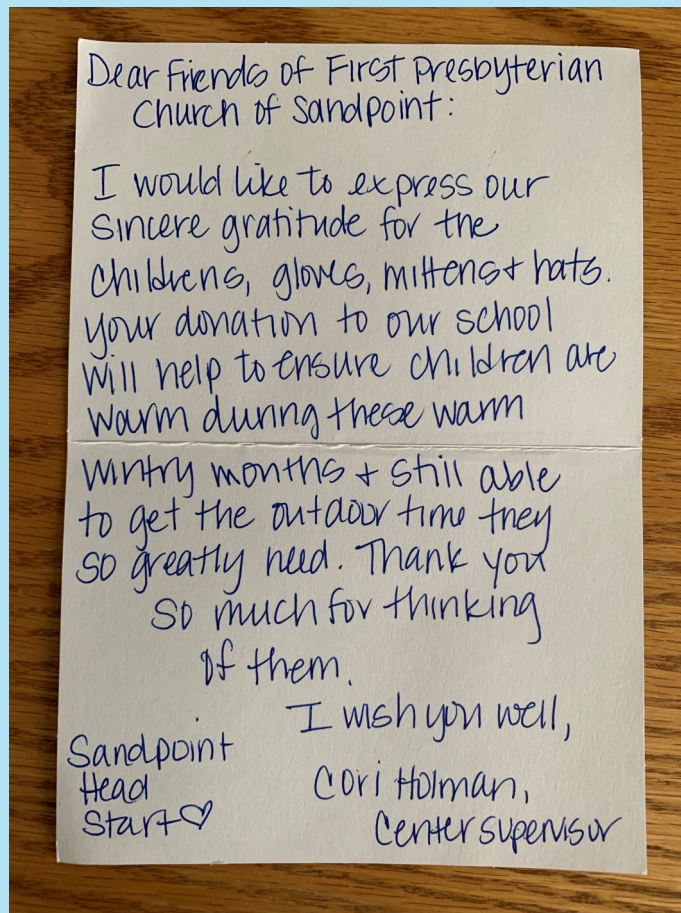 Dear Friends of First Presbyterian
Church of Sandpoint:
I would like to express our
sincere gratitude for the
childrens, gloves, mittens + hats.
your donation to our school
will help to ensure children are
warm during these warm
wintry months + still able
to get the outdoor time they
so greatly need. Thank you
so much for thinking
of them.
I wish you well,
Sandpoint
Head
Start♡
Cori Holman,
Center supervisor